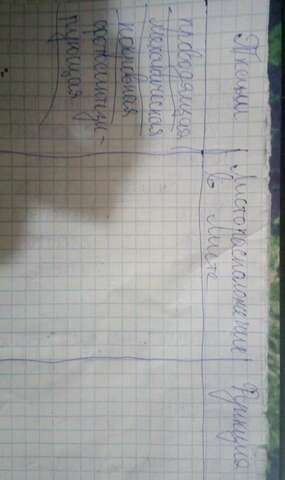 Ткани
Местоположение
в листе
Функция
- проводящая
механическая
покровная
фотосинтези-
рующая